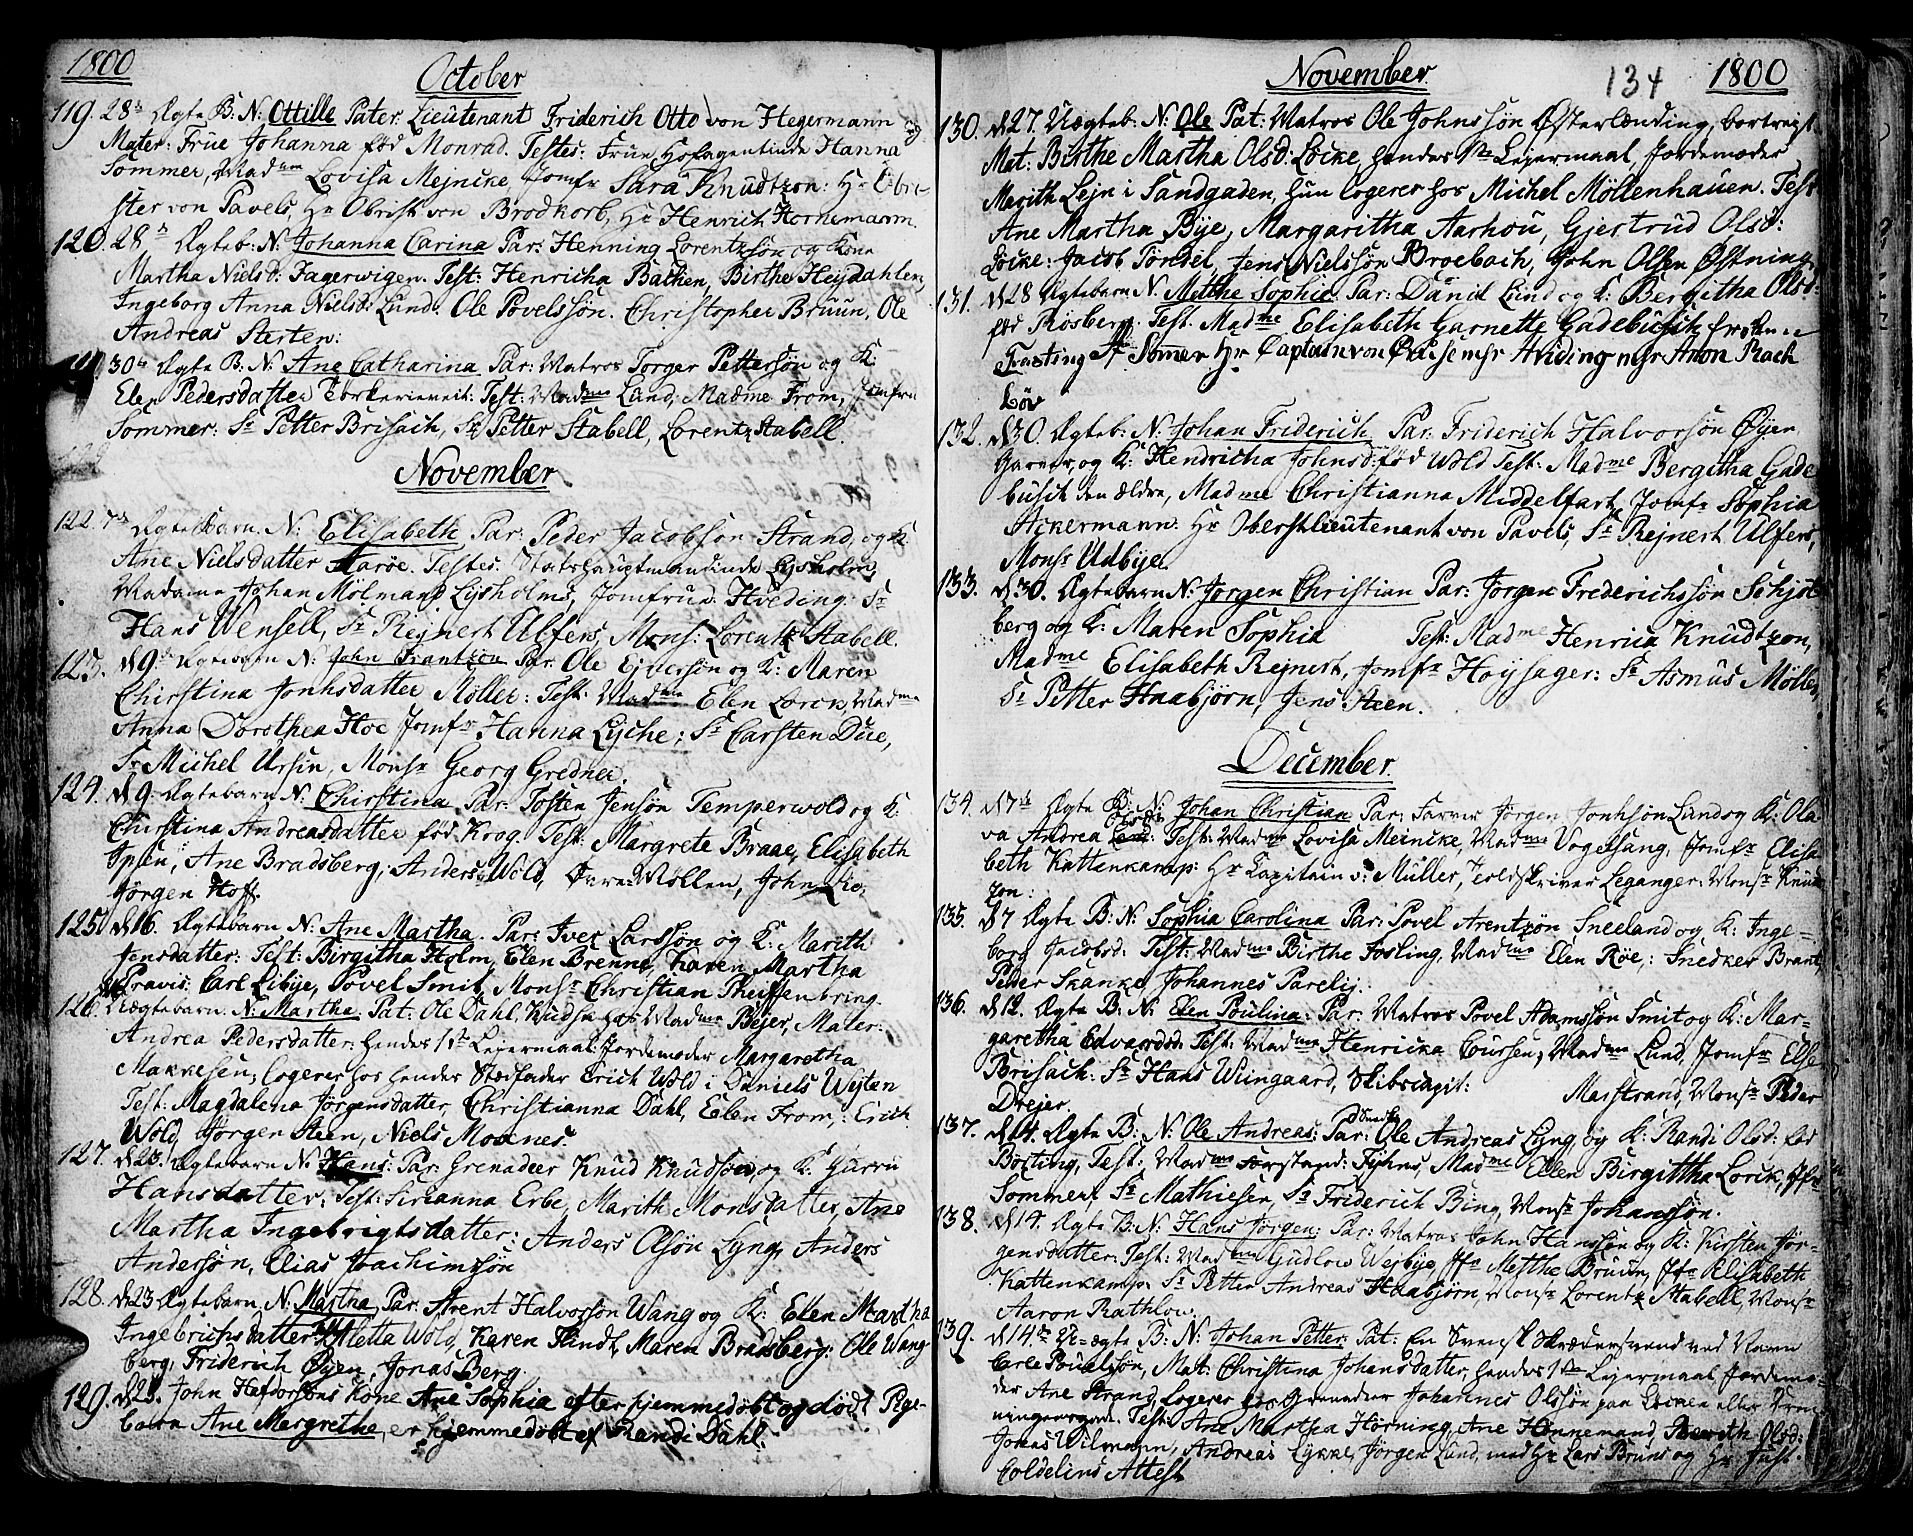 1800
October
119. 28de Ægte B: N: Ottille Pater. Lieutenant Friderich Otto von Hegermann og
Mater: Frue Johanna fød Monrad. Testes: Frue Hofagentinde Hanna
Sommer, Madme Lovisa Mejncke, Jomfr Sara Knudtzon: Hr Obri-
ster von Pavels, Hr Obrist von Brodkorb, Hr Henrich Hornemann.
120. 28de Ægteb: N: Johanna Carina Par: Henning Lorentzsøn og Kone
Martha Nielsd: Fagerwigen. Test: Henricha Backen, Birthe Heydahlen,
Ingeborg Anna Nielsd: Lund. Ole Povelssøn. Christopher Bruun, Ole
Andreas Sterten:
121. 30te Ægte B: N: Ane Catharina Par: Matros Torger Pettersøn og K:
Elen Pedersdatter Test: Madme Lund, Madme From, Jomfru
Sommer: Sr Petter Brisach, Sr Petter Stabell, Lorentz Stabell.
November
122. 7de Ægtebarn N: Elisabeth Par: Peder Jacobsøn Strand, og K
Ane Nielsdatter Aarøe. Testes. Stadshauptmandinde Lysholm,
Madame Johan Mølmans Lysholms, Jomfrue Hveding. Sr
Hans Wensell, Sr Rejnert Ulfers, Mons: Lorentz Stabell.
123. d 9de Ægtebarn N: John Frantzøn Par: Ole Ejversøn og K: Maren
Chirstina Jonhsdatter Møller: Test: Madme Elen Lorck, Madme
Anna Dorothea Hoe Jomfr Hanna Lyche: Sr Carsten Due,
Sr Michel Ursin, Monsr Georg Gredner.
124. d 9. Ægtebarn N: Chirstina Par: Tosten Jensøn Temperwold og K:
Chirstina Andreasdatter fød Krog. Test: Margrete Braae, Elisabeth
Ipsen, Ane Bradsberg, Anders Wold, Møllen, John Lie,
Jørgen Hoff.
125. d 16. Ægtebarn N: Ane Martha. Par: Iver Larssøn og K: Marith
Jensdatter: Test: Birgitha Holm, Elen Brenne, Karen Martha
Pravis: Carl Libye, Povel Smit, Monsr Christian Pheiffenbring.
126. Uægtebarn. N: Martha Pat: Ole Dahl, Kudsk hos Madme Bejer, Mater:
Andrea Pedersdatter: hendes 1ste Lejermaal: Jordemoder Margaretha
Makkesen; logerer hos hendes Stedfader Erich Wold i Daniels Wejten
Test: Magdalena Jørgensdatter, Christianna Dahl, Elen From,: Erich
Wold, Jørgen Steen, Niels Moxnes.
127. d 23. Ægtebarn N: Hans: Par: Grenadeer Knud Knudsøn, og K: Gurru
Hansdatter: Test: Sirianna Erbe, Marith Monsdatter, Ane
Martha Ingebrigtsdatter: Anders Olsøn Lyng, Anders
Andersøn, Elias Joachimsøn
128. d 23 Ægtebarn N: Martha, Par: Arent Halvorsøn Wang og K: Elen Martha
Ingebrichsdatter Test: Aletta Wold, Karen Flindt, Maren Bradsberg: Ole Wang-
berg, Friderich Øyen, Jonas Berg.
129. d 23. John Hafdorsøns Kone Ane Sophia efter hjemmedøbt og dødt Pige-
barn Ane Margrethe, er hjemmedøbt af Randi Dahl.
November
134
1800
130. d 27. Uægteb: N: Ole Pat: Matros Ole Johnssøn Østerlænding, bortrejst
Mat: Birthe Martha Olsd: Løcke, hendes 1ste Lejermaal, Jordemoder
Marith Lejn i Sandgaden, hun logerer hos Michel Møllenhauen. Test
Ane Martha Bye, Margaritha Aarhou, Gjertrud Olsd:
Løcke: Jacob Tøndel, Jens Nielssøn Broebach, John Olsen Østning.
131. d 28 Ægtebarn N: Metthe Sophie. Par: Daniel Lund og K: Bergitha Olsd:
fød Røsberg. Test. Madme Elisabeth Garnette Gadebusch
Fasting Jf Somer Hr Captain von Hviding msr Aron Rach
Løv
132. d 30. Ægteb: N: Johan Friderich Par: Friderich Halvorsøn Øyen
Garver, og K: Hendricha Johnsd: fød Wold Test: Madme Bergitha Gade
busch den ældre, Madme Christianna Middelfart, Jomfr Sophia
Ackermann: Hr Oberstlieutenant von Pavels, Sr Rejnert Ulfers,
Monsr Udbye.
133. d 30. Ægtebarn N: Jørgen Christian Par: Jørgen Frederichssøn Schjøt
berg og K: Maren Sophia Test: Madme Henrica Knudtzon,
Madme Elisabeth Rejnert, Jomfr Hoysager: Sr Asmus Møller,
Sr Petter Haabjørn, Jens Steen.
December.
134. d 7de Ægte B: N: Johan Christian Par: Farver Jørgen Jonhsøn Lund og K: Ola
va Andrea Olsdr: Test: Madme Lovisa Meincke, Madme Vogelsang, Jomfr Elisa
beth Kattenkamp: Hr Capitain v: Müller, Toldskriver Leganger: Monsr Knud
zon:
135. d 7 Ægte B: N: Sophia Carolina Par: Povel Arentzøn Sneeland og K: Inge-
borg Jacobsd: Test: Madme Birthe Fosling, Madme Elen Røe,: Snedker Brant
Peder Skanke, Johannes Parelij.
136. d 12. Ægte B: N: Elen Poulina: Par: Matros Povel Adamssøn Smit og K: Mar-
garetha Edvardsd: Test: Madme Henricka Coursen, Madme Lund, Jomfr Else
Brisach: Sr Hans Wiingaard, Skibscapit: Marstrand, Monsr Peder
Drejer.
137. d 14. Ægte B: N: Ole Andreas: Par: Ole Andreas Lyng, og K: Randi Olsd: fød
Bøsting, Test: Madme Forstand: Fyhns, Madme Ellen Birgittha Lorck, Jfr
Sommer, Sr Mathiesen, Sr Friderich Bing, Monsr Johanssøn.
138. d 14. Ægte B: N: Hans Jørgen: Par: Matros John Hanssøn og K: Kirsten Jør-
gensdatter: Test: Madme Gudlow Wejbye, Jfr Metthe Bruun, Jfr Elisabeth
Kattenkamp: Sr Petter Andreas Haabjørn, Monsr Lorentz Stabell, Monsr
Aaron Rathlow.
139. d 14de U-ægte B: N: Johan Petter: Pat: En Svensk Skrædersvend ved Navn
Carl Poulssøn, Mat: Christina Johansdatter, hendes 1ste Lejermaal, Jordemo-
der Ane Strand, Logerer hos Grenadeer Johannes Olssøn paa Løcken eller Dron-
ningensgade. Test: Ane Martha Hørning, Ane Hennemand, Marith Olsd:
Jonas Wilmann, Andreas Lykke, Jørgen Lund, med Hr Lars Bruns og Hr Just
Coldelins Attest